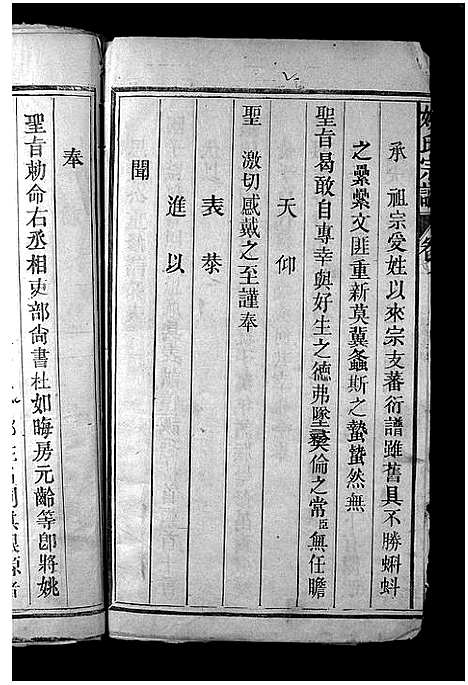 姚氏宗譜
承　祖宗受姓以來宗支蕃衍譜雖舊具不勝蝌蚪
之纍纍文匪重新莫冀螽斯之蟄蟄然無
聖旨曷敢自專幸與好生之德弗墜彝倫之常臣無任瞻
天仰
聖　激切感戴之至謹奉
表㳟
進以
聞
奉
聖旨勅命右丞相吏部尙書杜如晦房元齡等卽將姚